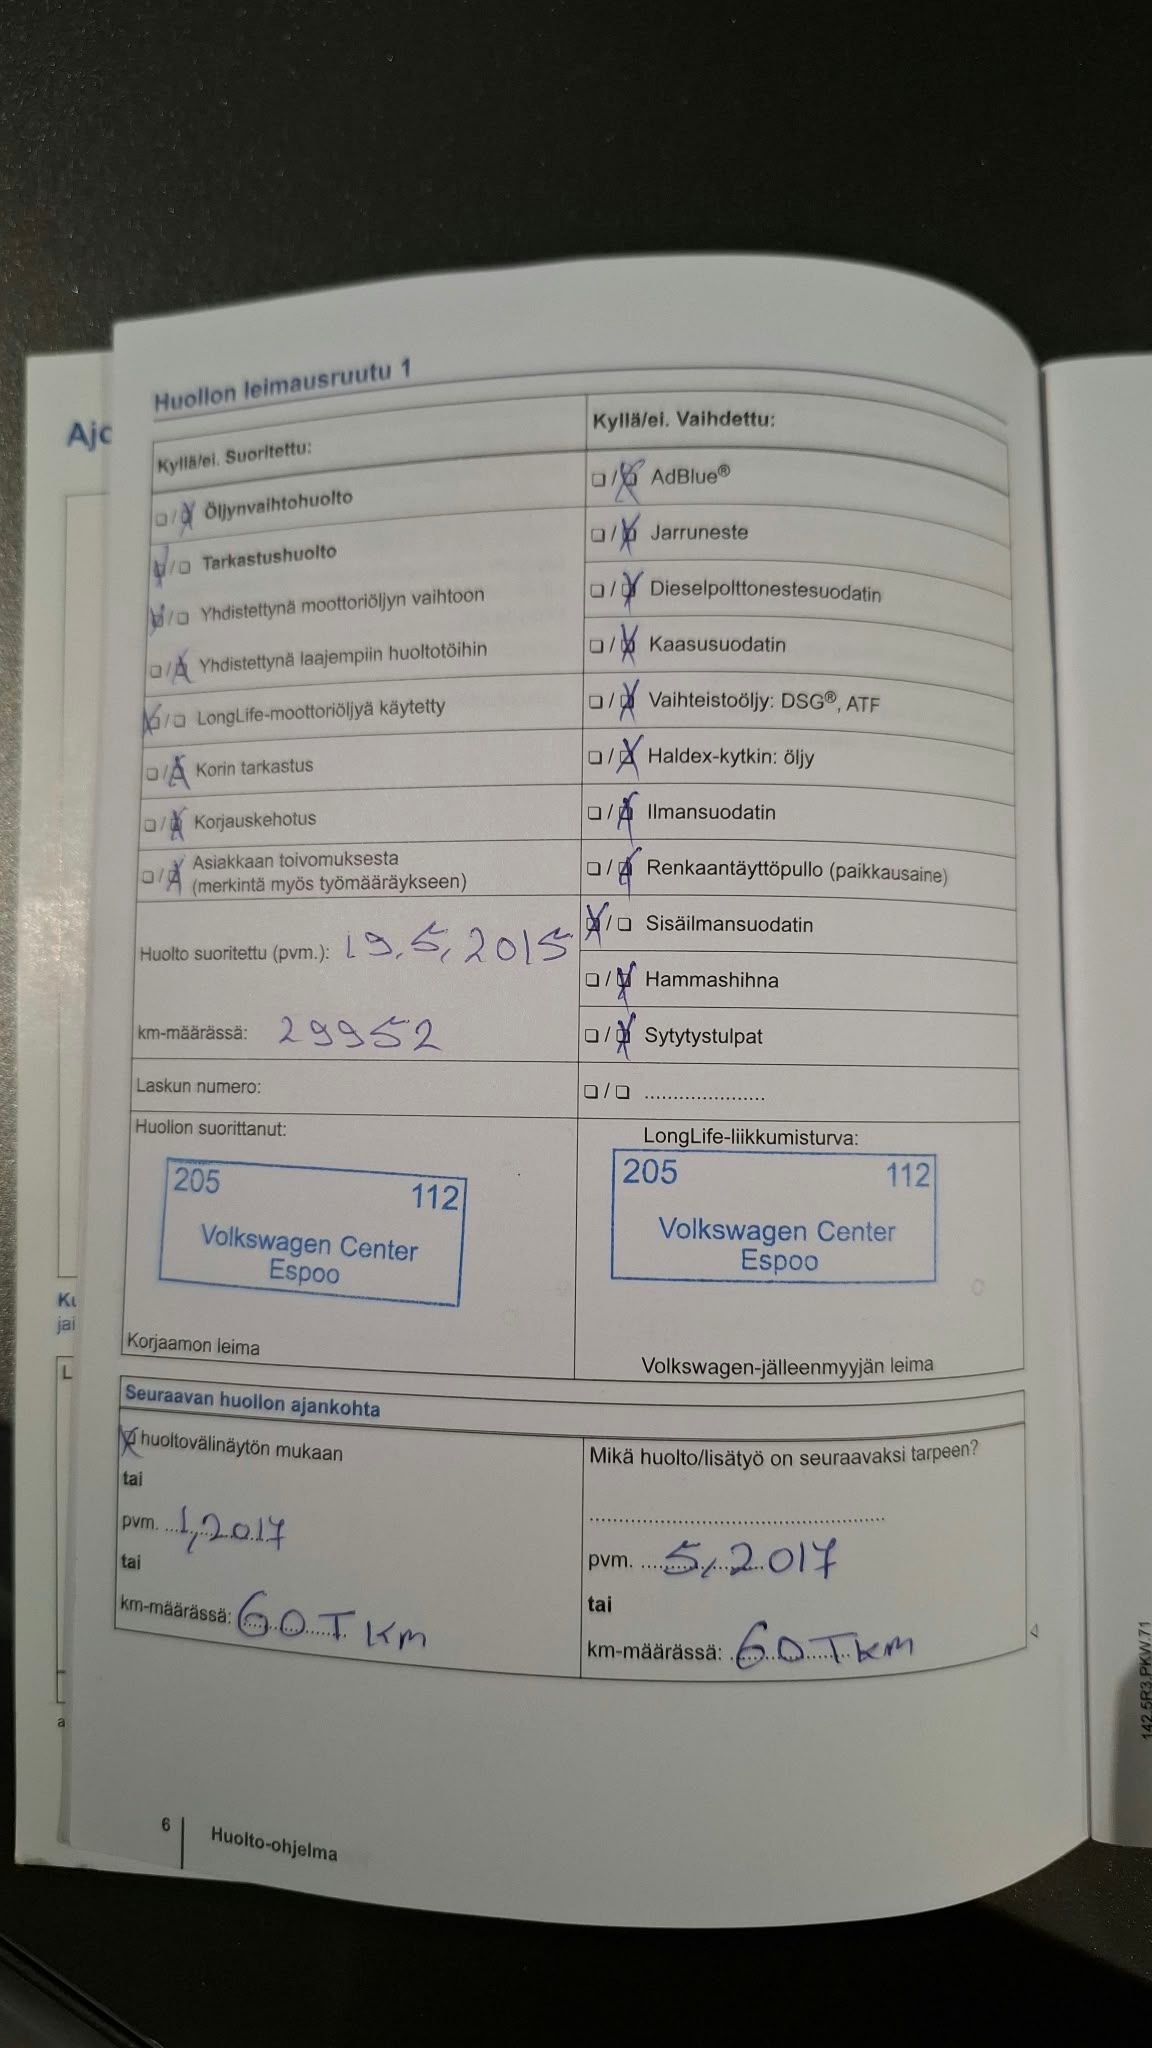 Huollon leimausruutu 1
Kyllä/ei. Suoritettu:
☐/☒ Öljynvaihtohuolto
☒/☐ Tarkastushuolto
☒/☐ Yhdistettynä moottoriöljyn vaihtoon
☐/☒ Yhdistettynä laajempiin huoltotöihin
☒/☐ LongLife-moottoriöljyä käytetty
☐/☒ Korin tarkastus
☐/☒ Korjauskehotus
☐/☒ Asiakkaan toivomuksesta
(merkintä myös työmääräykseen)
Huolto suoritettu (pvm.): 19.5.2015
km-määrässä: 29952
Laskun numero:
Huollon suorittanut:
205 112
Volkswagen Center
Espoo
Korjaamon leima
Kyllä/ei. Vaihdettu:
☐/☒ AdBlue®
☐/☒ Jarruneste
☐/☒ Dieselpolttonestesuodatin
☐/☒ Kaasusuodatin
☐/☒ Vaihteistoöljy: DSG®, ATF
☐/☒ Haldex-kytkin: öljy
☐/☒ Ilmansuodatin
☐/☒ Renkaantäyttöpullo (paikkausaine)
☒/☐ Sisäilmansuodatin
☐/☒ Hammashihna
☐/☒ Sytytystulpat
☐/☐ ......................
LongLife-liikkumisturva:
205 112
Volkswagen Center
Espoo
Volkswagen-jälleenmyyjän leima
Seuraavan huollon ajankohta
☒ huoltovälinäytön mukaan
tai
pvm. 1,2017
tai
km-määrässä: 60 T km
Mikä huolto/lisätyö on seuraavaksi tarpeen?
pvm. 5,2017
tai
km-määrässä: 60 T km
6 Huolto-ohjelma
142.5R3.PKW.71
Ajo
jai
L
a